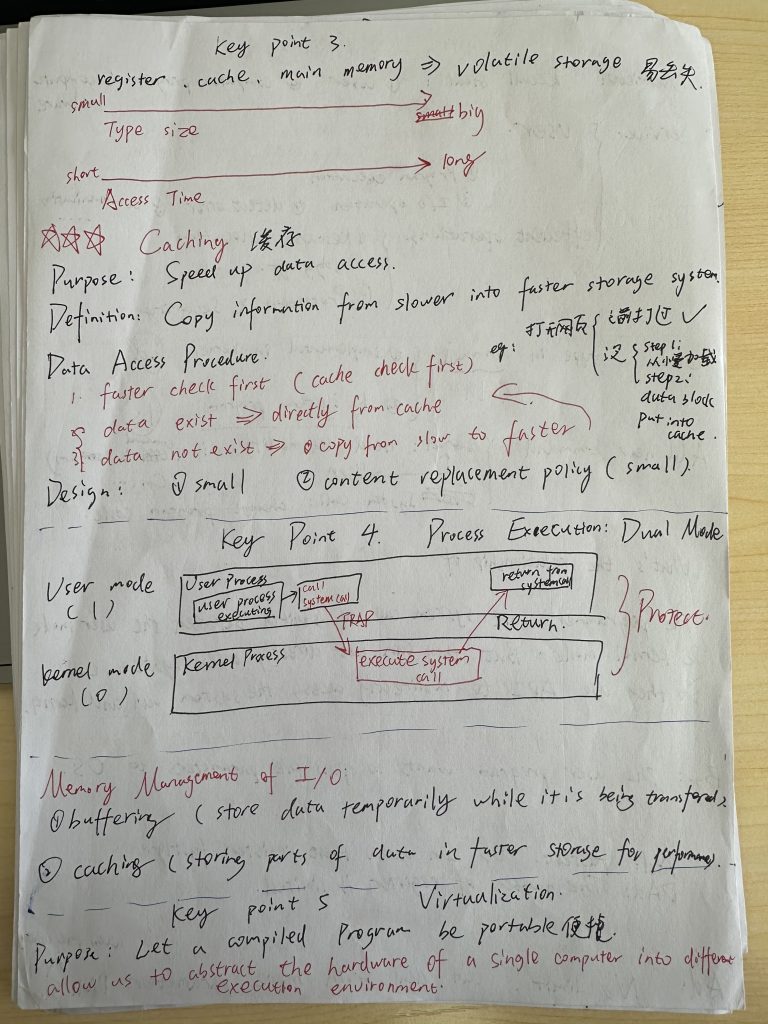 Key point 3.
register, cache, main memory ⇒ volatile storage 易丢失.
small → small big
Type size
short → long
Access Time
☆☆☆ Caching 缓存
Purpose: Speed up data access.
Definition: Copy information from slower into faster storage system.
eg: 打开网页 { 之前打过 ✓
没 { step1:
从小慢加载
step2:
data block
put into
cache.
Data Access Procedure:
1. faster check first (cache check first)
2 { data exist ⇒ directly from cache
3 { data not exist ⇒ ① copy from slow to faster
Design: ① small ② content replacement policy (small).
Key Point 4. Process Execution: Dual Mode
User mode
(1)
User Process
user process
executing
call
system call
return from
system call
TRAP
Return.
Protect.
kernel mode
(0)
Kernel Process
execute system
call
Memory Management of I/O:
① buffering (store data temporarily while it is being transferred)
② caching (storing parts of data in faster storage for performance).
Key point 5 Virtualization.
Purpose: Let a compiled Program be portable 便携.
allow us to abstract the hardware of a single computer into different
execution environment.